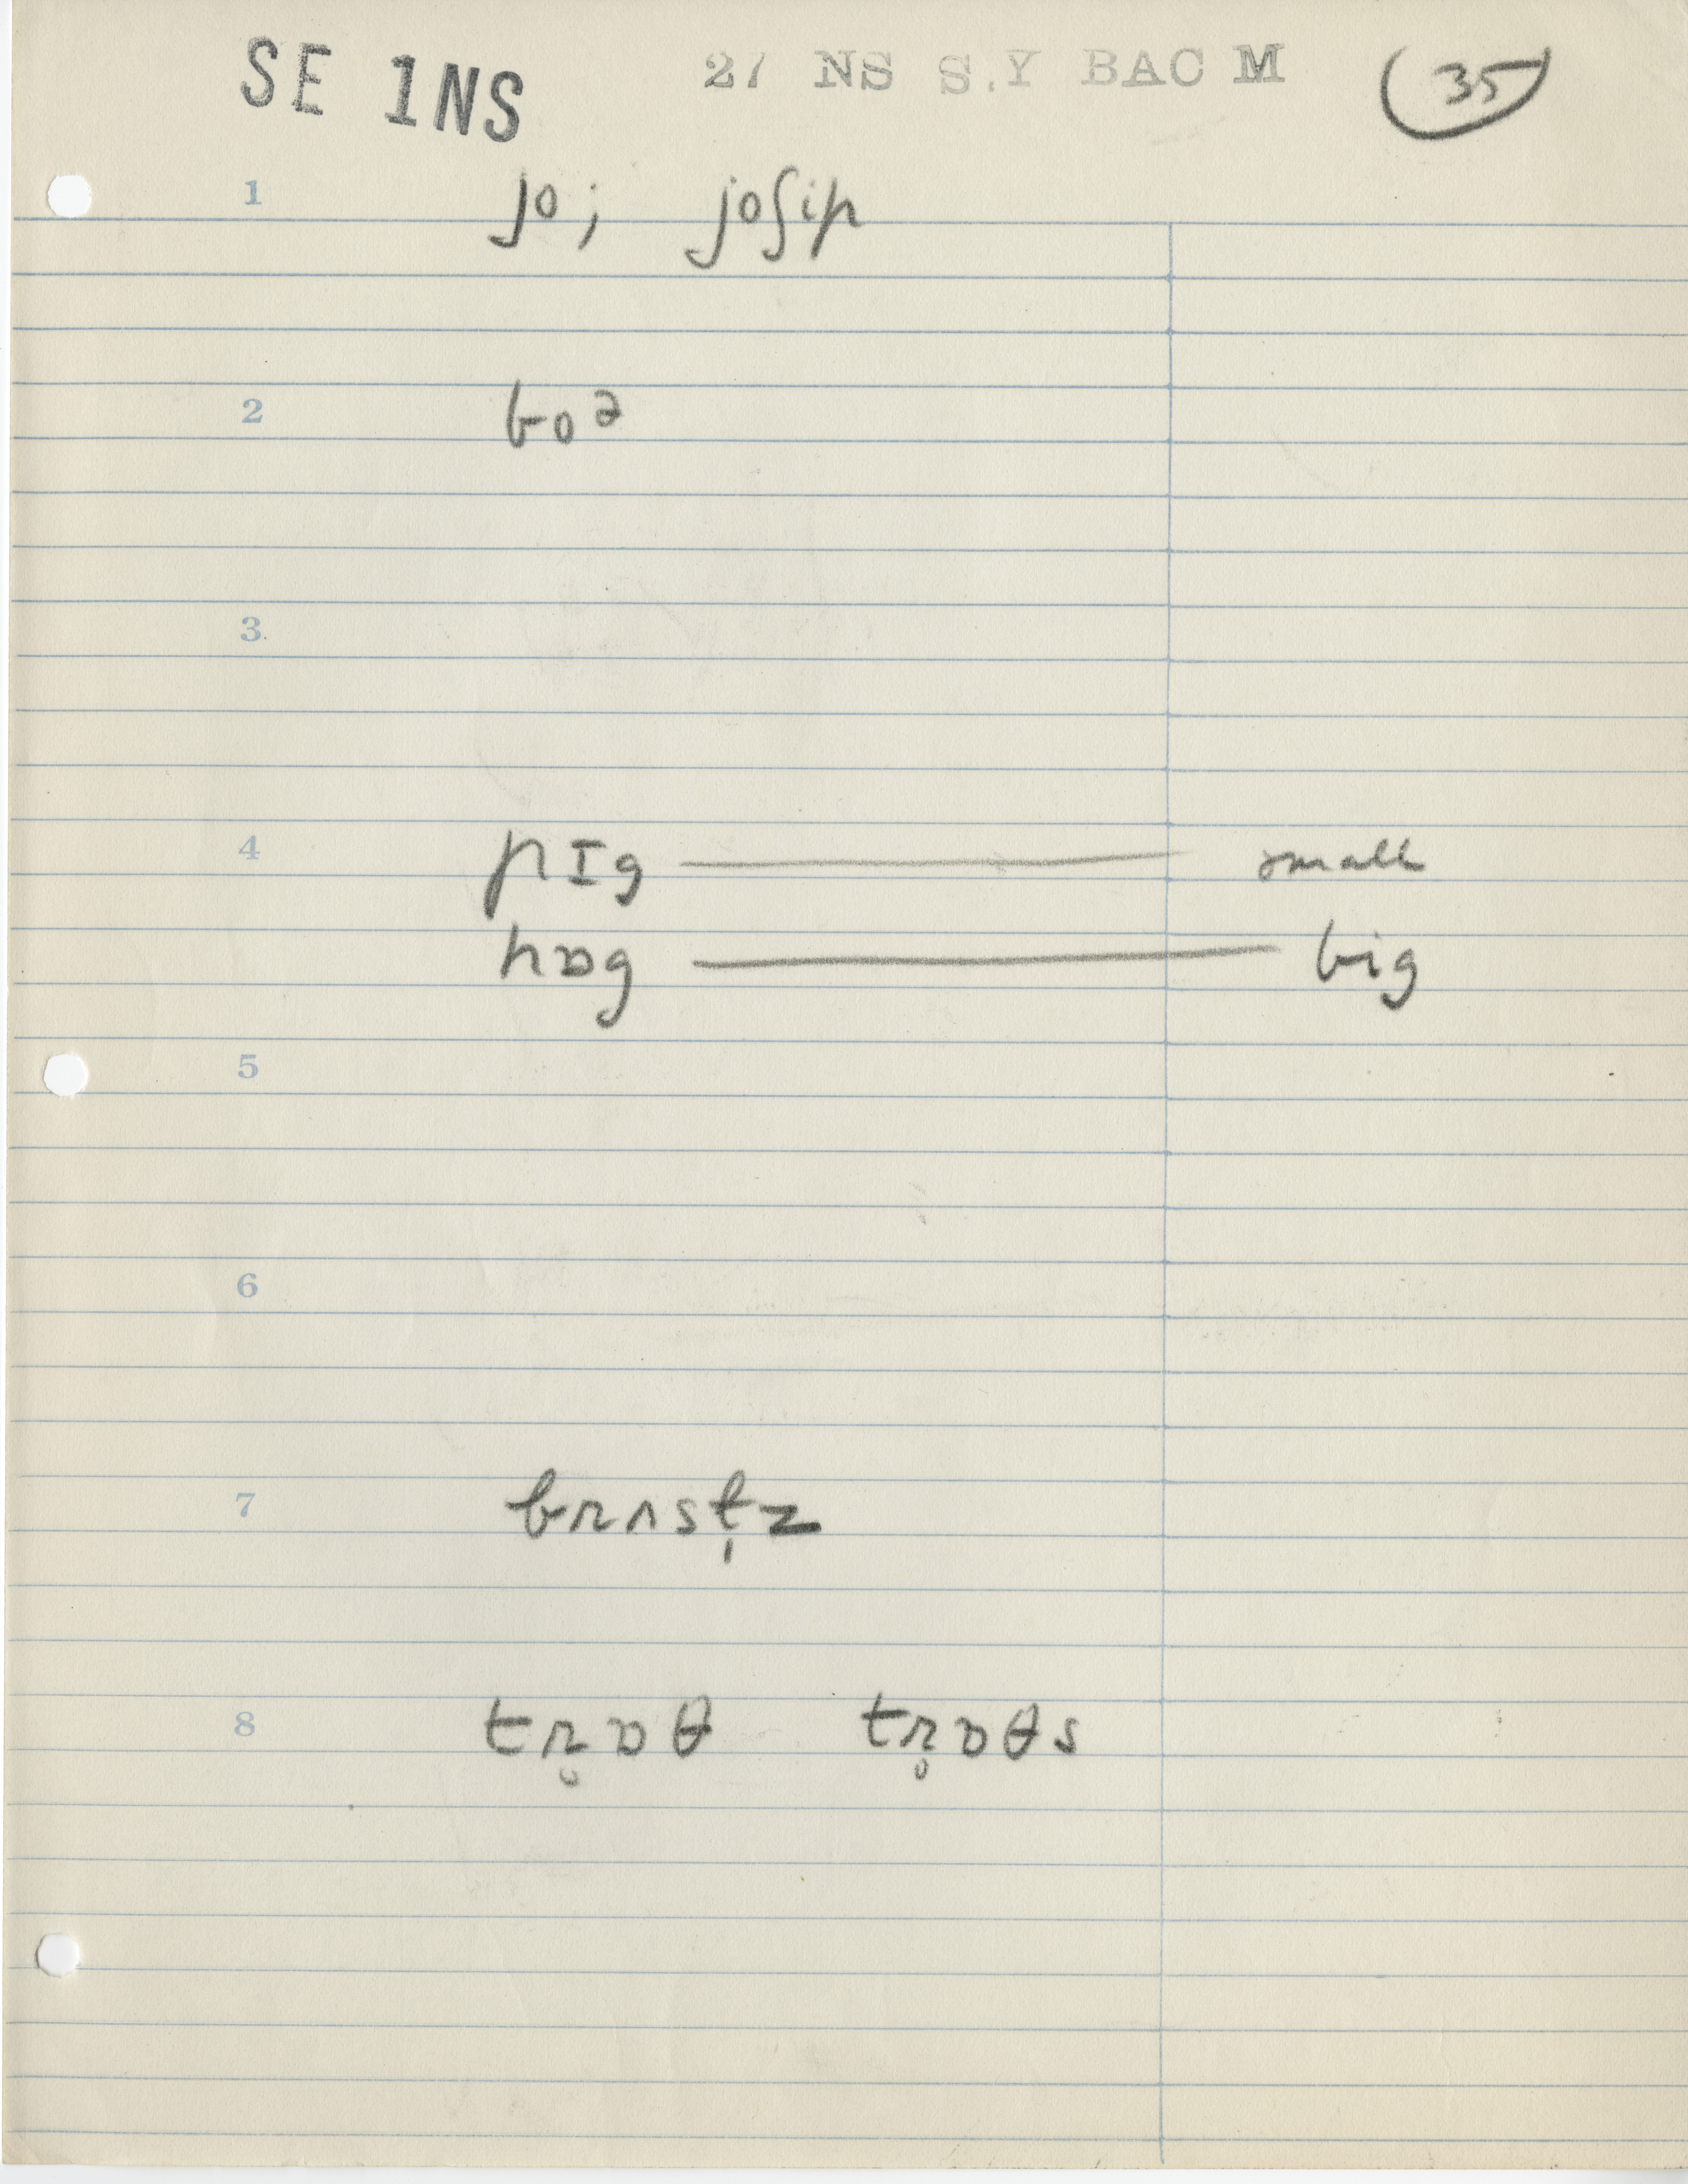 SE 1NS 27 NS S.Y BAC M 35
1 jo; joʃip
2 boə
3
4 pɪg — small
hɒg — big
5
6
7 brʌst̩z
8 tr̥ɒθ tr̥ɒθs